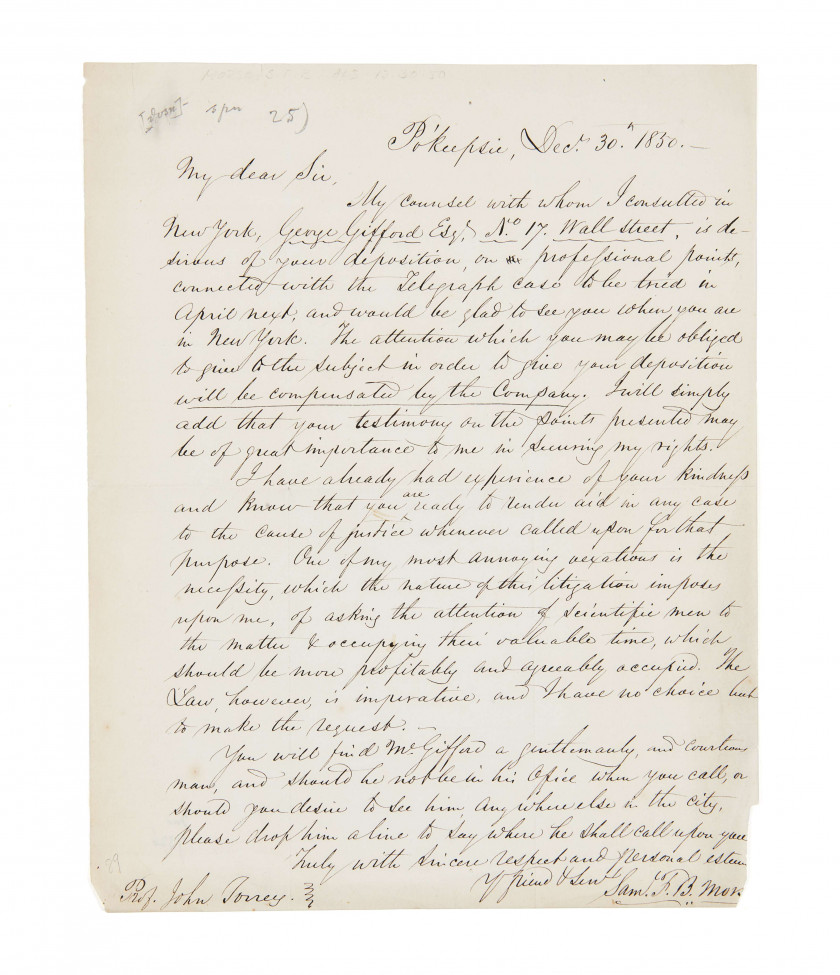 25)
Po'keepsie, Decr. 30.th 1850.—
My dear Sir,
My counsel with whom I consulted in
New York, George Gifford Esqr, No 17. Wall street, is de-
sirous of your deposition, on professional points,
connected with the Telegraph case to be tried in
April next, and would be glad to see you when you are
in New York. The attention which you may be obliged
to give to the subject in order to give your deposition
will be compensated by the Company. I will simply
add that your testimony on the points presented may
be of great importance to me in securing my rights.
I have already had experience of your kindness
and know that you are ready to render aid in any case
to the cause of justice whenever called upon for that
purpose. One of my most annoying vexations is the
necessity, which the nature of this litigation imposes
upon me, of asking the attention of scientific men to
the matter & occupying their valuable time, which
should be more profitably and agreeably occupied. The
Law, however, is imperative, and I have no choice but
to make the request.—
You will find Mr. Gifford a gentlemanly, and courteous
man, and should he not be in his Office when you call, or
should you desire to see him, any where else in the city,
please drop him a line to say where he shall call upon you
Truly with sincere respect and personal esteem
Yr friend & Servt
Saml. F. B. Mors
Prof. John Torrey.
29